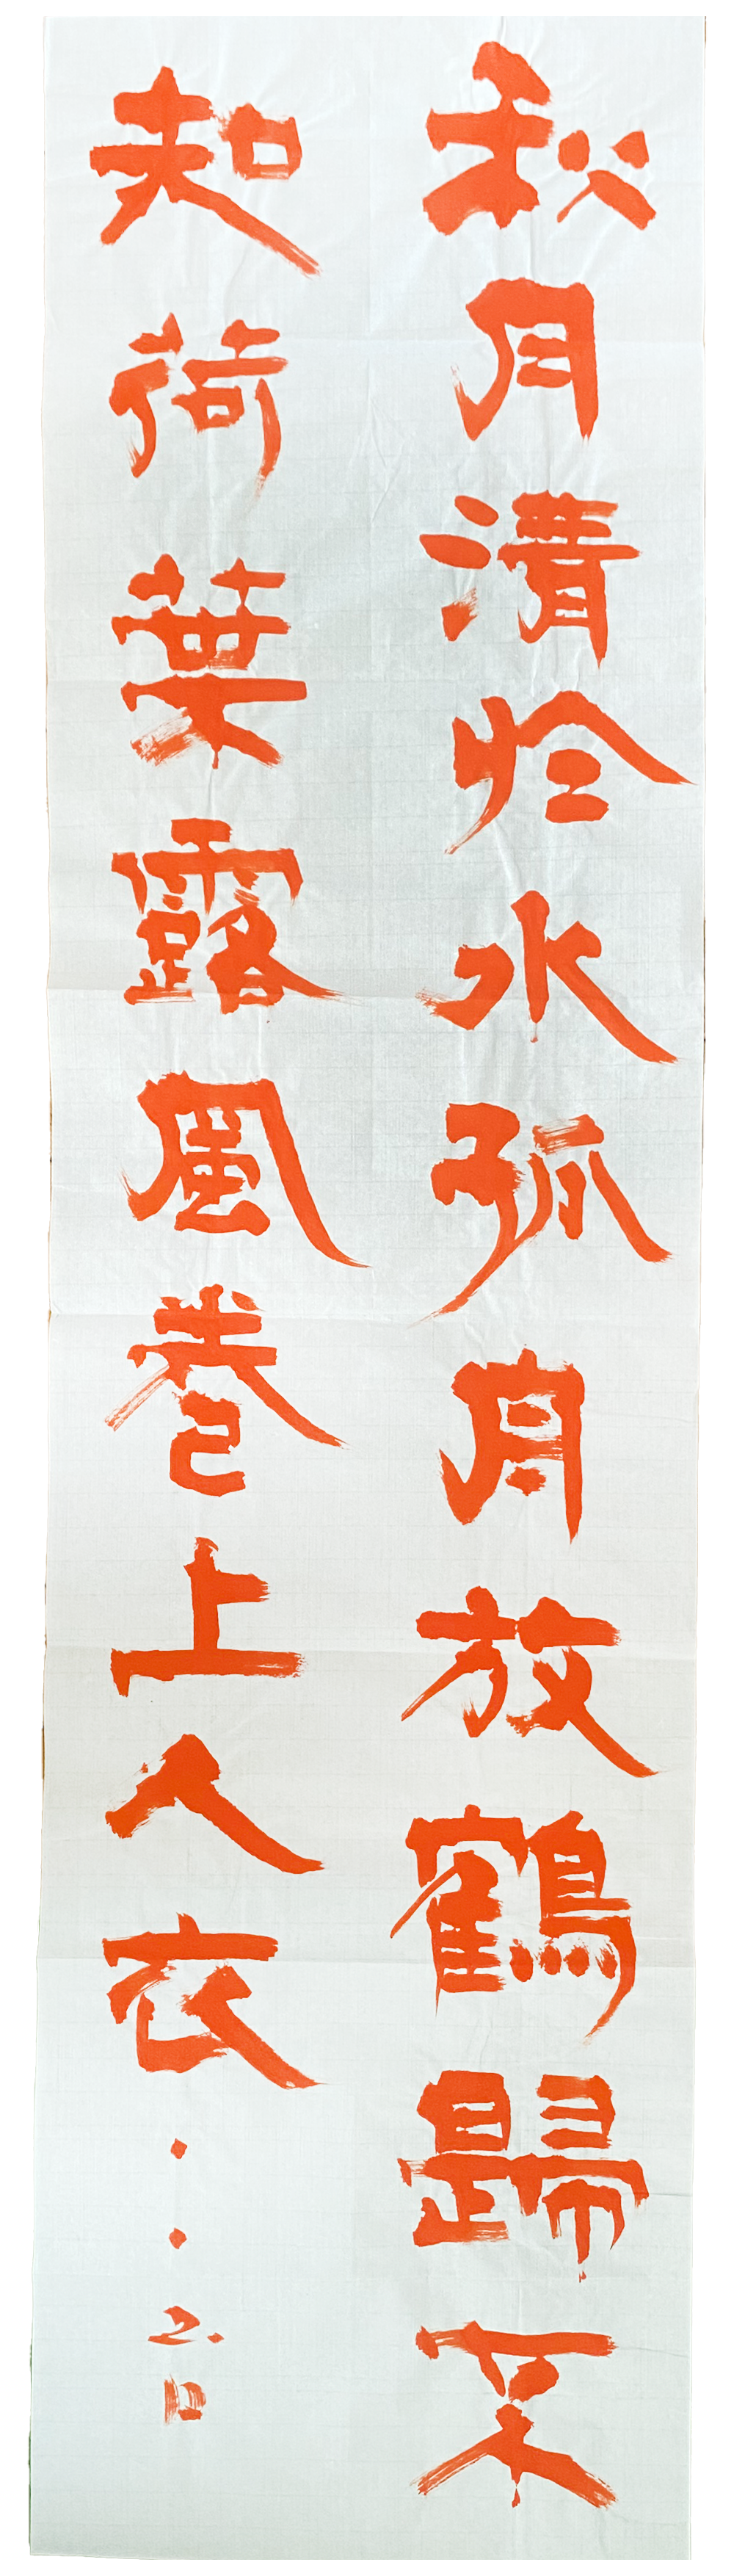 秋月清於水孤舟放鶴歸不
知荷葉露風卷上人衣